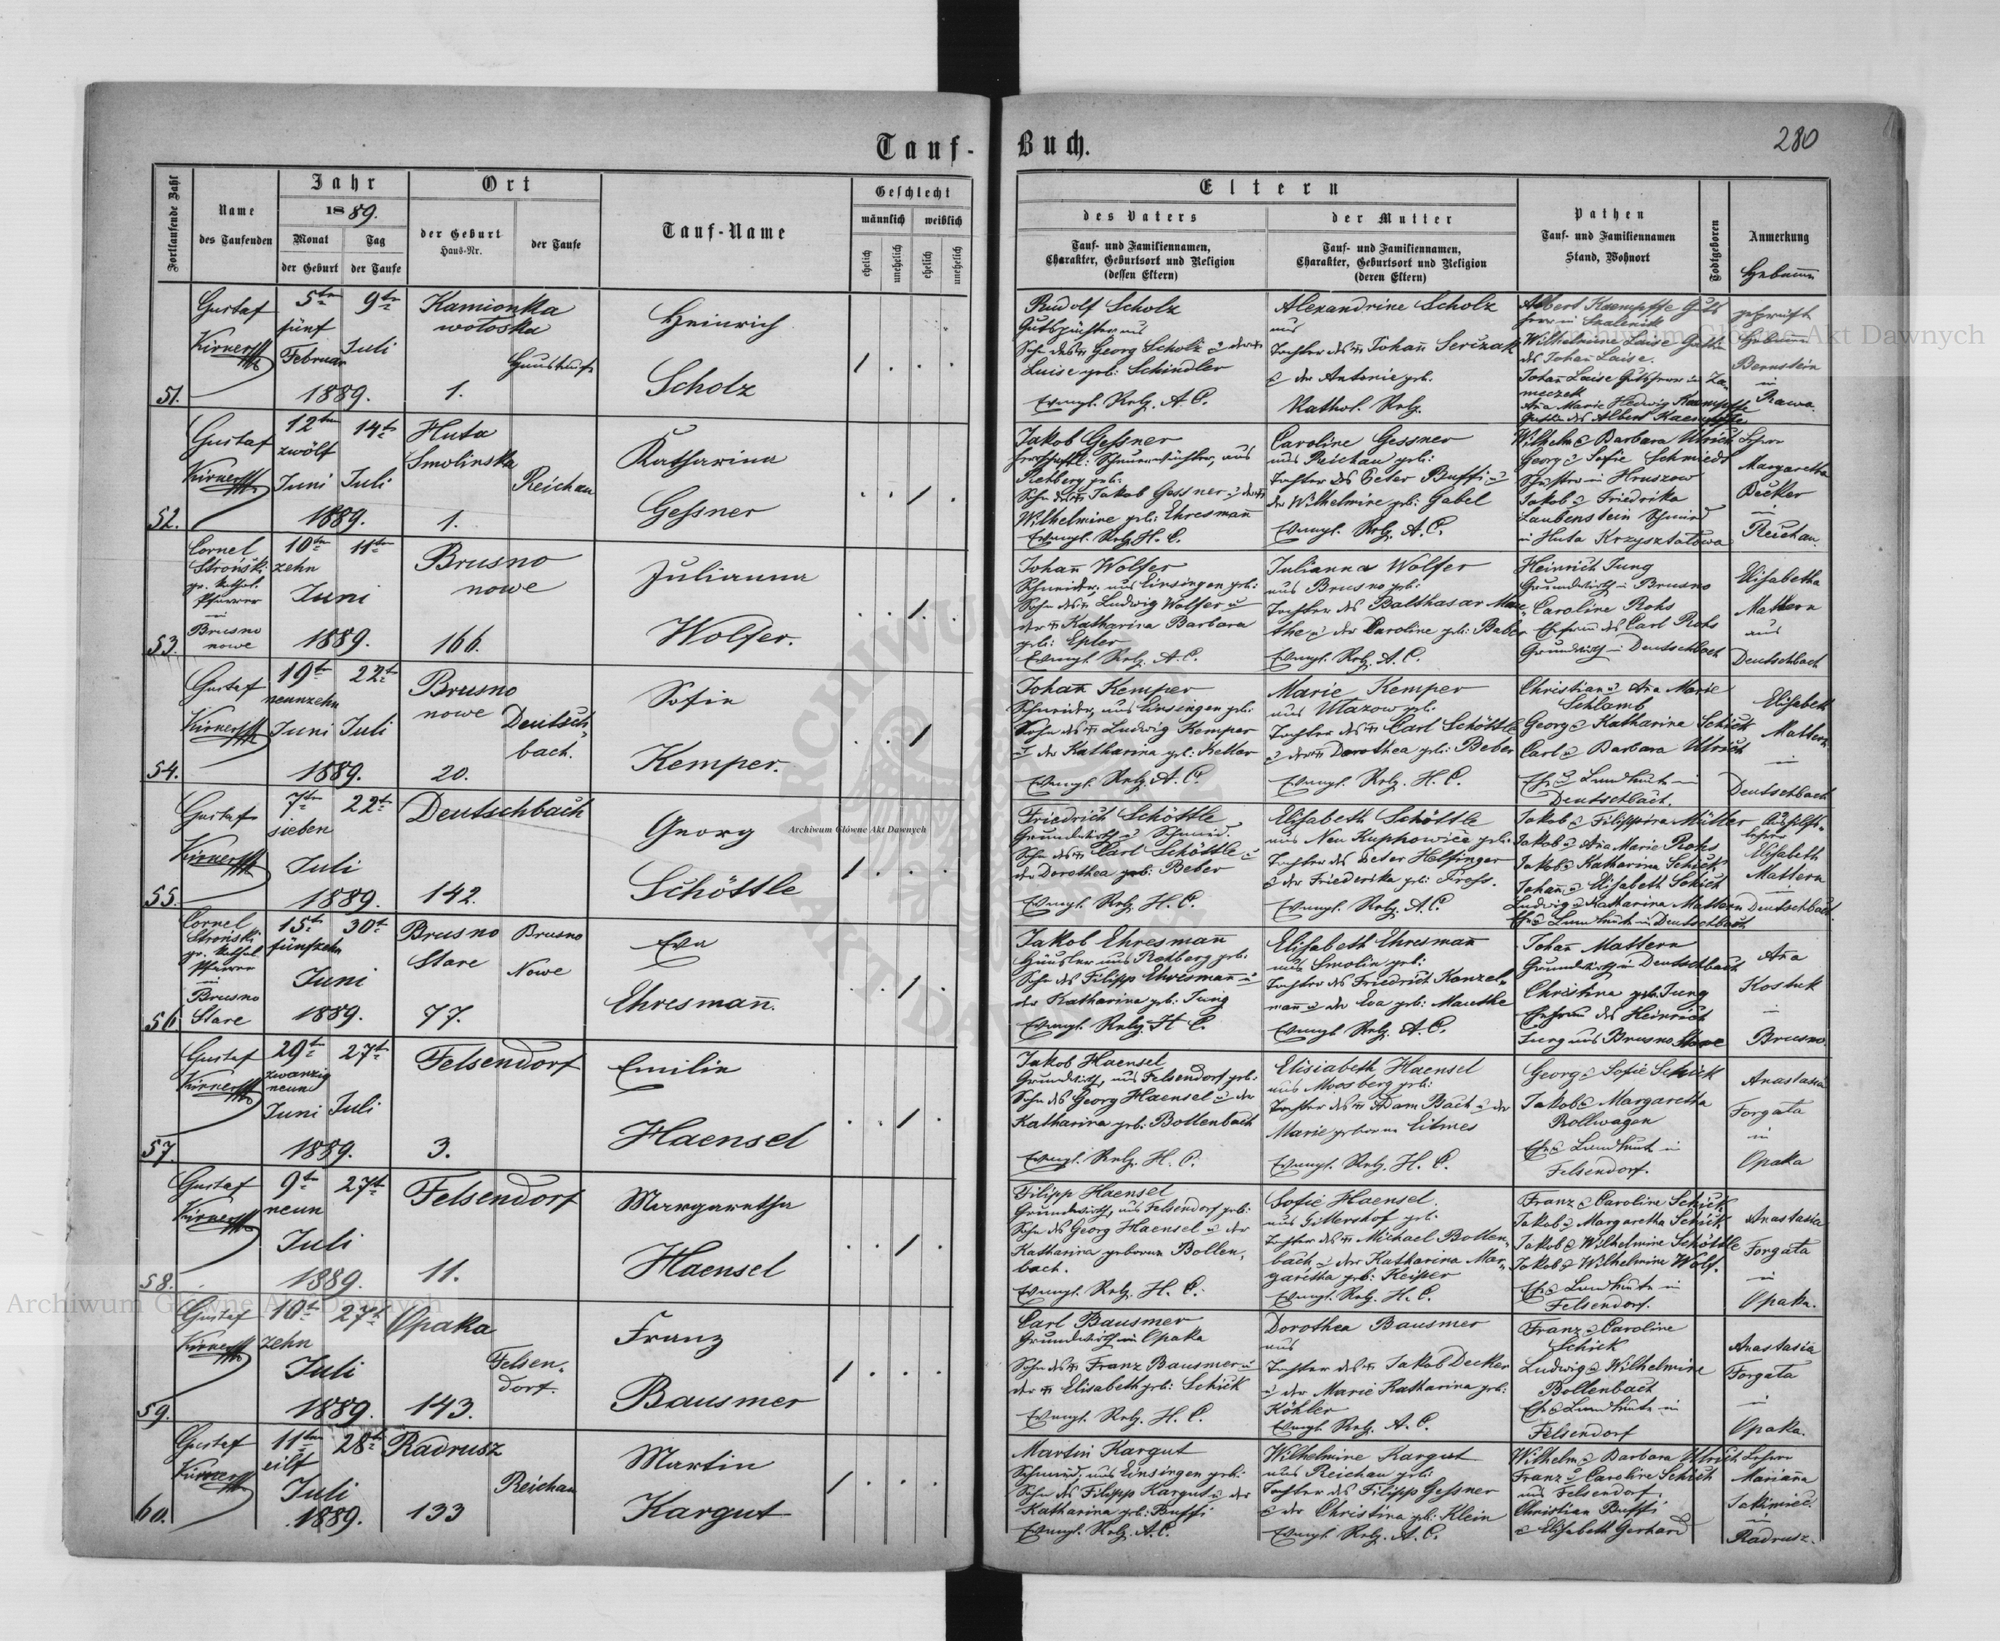 Tauf-Buch.
280
Fortlaufende Zahl
Name
des Taufenden
Jahr
1889.
Monat
der Geburt
Tag
der Taufe
Ort
der Geburt
Haus-Nr.
der Taufe
Tauf-Name
Geschlecht
männlich
weiblich
ehelich
unehelich
ehelich
unehelich
Eltern
des Vaters
Tauf- und Familiennamen,
Charakter, Geburtsort und Religion
(dessen Eltern)
der Mutter
Tauf- und Familiennamen,
Charakter, Geburtsort und Religion
(deren Eltern)
Pathen
Tauf- und Familiennamen
Stand, Wohnort
Todtgeboren
Anmerkung
51.
Gustaf
5ten
fünf
Februar
9ten
Juli
1889.
Kamionka
wołoska
1.
Heinrich
Scholz
1
Rudolf Scholz
Sohn des Georg Scholz
Luise geb: Schindler
Evangl. Relg. A.C.
Alexandrine Scholz
aus
Tochter des Johann
der Antonie geb.
Kathol. Relg.
Albert Kaempffe
Wilhelmine Laise
des Johan Laise.
Ana Marie Hedwig Kaempffe
des Albert Kaempffe
Bernstein
in
Rawa
52.
Gustaf
12ten
zwölf
Juni
14te
Juli
1889.
Huta
Smolinska
1.
Reichau
Katharina
Gessner
1
Jakob Gessner
aus
Retberg geb.
Sohn des Jakob Gessner
Wilhelmine geb: Ehresmann
Evangl. Relg. H. C.
Caroline Gessner
aus Reichau geb:
Tochter des Peter Buffi
der Wilhelmine geb: Gabel
Evangl. Relg. A.C.
Wilhelm & Barbara Ulrich Lehrer
Georg & Sofie Schmiedt
in Hruszow
Jakob & Friedrika
Laubenstein Schmied
in Huta Krzysztalowa
Margaretha
Becker
in
Reichau.
53.
Cornel
Stroński
gr. kathol.
Pfarrer
in
Brusno
nowe
10ten
zehn
11te
Juni
1889.
Brusno
nowe
166.
Julianna
Wolfer.
1.
Johann Wolfer
Schneider, aus Einsingen geb:
Sohn des Ludwig Wolfer
der Katharina Barbara
geb: Epler
Evangl. Relg. A.C.
Julianna Wolfer
aus Brusno geb:
Tochter des Balthasar
der Caroline geb:
Evangl. Relg. A.C.
Heinrich Jung
Grundwirth in Brusno
Caroline Rohs
Ehefrau des Carl Rohs
Grundwirth in Deutschbach
Elisabetha
Mattern
aus
Deutschbach
54.
Gustaf
19te
neunzehn
Juni
22te
Juli
1889.
Brusno
nowe
20.
Deutsch-
bach.
Sofie
Kemper.
1
Johann Kemper
Schneider, aus Einsingen geb:
Sohn des Ludwig Kemper
der Katharina geb: Ketler
Evangl. Relg. A.C.
Marie Kemper
aus Ulazow geb:
Tochter des Carl Schöttle
Dorothea geb: Beber
Evangl. Relg. H. C.
Christian & Ana Marie
Schlamb
Georg & Katharina Schick
Carl & Barbara Ulrich
Ehe & Landleute in
Deutschbach.
Elisabeth
Mattern
in
Deutschbach
55.
Gustaf
7ten
sieben
22te
Juli
1889.
Deutschbach
142.
Georg
Schöttle
1
Friedrich Schöttle
Grundwirth & Schmied.
Sohn des Carl Schöttle
der Dorothea geb: Beber
Evangl. Relg. H. C.
Elisabeth Schöttle
aus Neu geb:
Tochter des Peter Helfinger
& der Friederika geb:
Evangl. Relg. A.C.
Jakob & Filippina Müller
Jakob & Ana Marie Rohs
Jakob & Katharina Schick
Johann & Elisabeth Schick
Ludwig & Katharina Mattern
Ehe & Landleute in Deutschbach
Elisabeth
Mattern
in
Deutschbach.
56
Cornel
Stroński
gr. kathol.
Pfarrer
in
Brusno
Stare
15te
fünfzehn
30te
Juni
1889.
Brusno
Stare
77.
Brusno
Nowe
Eva
Ehresmann.
1
Jakob Ehresmann
Häusler aus Retberg geb.
Sohn des Filipp Ehresmann
der Katharina geb. Jung
Evangl. Relg. H. C.
Elisabeth Ehresmann
aus Smolin geb:
Tochter des Friedrich Kanzel-
mann & der Eva geb: Mauthe
Evangl. Relg. A.C.
Johann Mattern
Grundwirth in Deutschbach
Christina geb. Jung
Ehefrau des Heinrich
Jung aus Brusno Stare
Ana
Kostuk
in
Brusno
57
Gustaf
29te
zwanzig
neun
Juni
27te
Juli
1889.
Felsendorf
3.
Emilie
Haensel
1
Jakob Haensel
Grundwirth, aus Felsendorf geb:
Sohn des Georg Haensel & der
Katharina geb: Bollenbach
Evangl. Relg. H. C.
Elisabeth Haensel
aus Moosberg geb:
Tochter des Adam Bach & der
Marie geborne
Evangl. Relg. H. C.
Georg & Sofie Schick
Jakob & Margaretha
Rollwagen
Ehe & Landleute in
Felsendorf.
Anastasia
Forgata
in
Opaka
58.
Gustaf
9ten
neun
27te
Juli
1889.
Felsendorf
11.
Margaretha
Haensel
1
Filipp Haensel
Grundwirth, aus Felsendorf geb:
Sohn des Georg Haensel & der
Katharina geborne Bollen-
bach.
Evangl. Relg. H. C.
Sofie Haensel
aus geb.
Tochter des Michael Bollen-
bach & der Katharina Mar-
garetha geb: Keiper
Evangl. Relg. H. C.
Franz & Caroline Schick
Jakob & Margaretha Schick
Jakob & Wilhelmine Schöttle
Jakob & Wilhelmine Wolf.
Ehe & Landleute in
Felsendorf.
Anastasia
Forgata
in
Opaka.
59.
Gustaf
10te
zehn
27te
Juli
1889.
Opaka
143.
Felsen-
dorf.
Franz
Bausmer
1
Carl Bausmer
Grundwirth in Opaka
Sohn des Franz Bausmer
der Elisabeth geb: Schick
Evangl. Relg. H. C.
Dorothea Bausmer
aus
Tochter des Jakob Decker
& der Marie Katharina geb:
Köhler
Evangl. Relg. A. C.
Franz & Caroline
Schick
Ludwig & Wilhelmine
Bollenbach
Ehe & Landleute in
Felsendorf
Anastasia
Forgata
in
Opaka.
60.
Gustaf
11ten
eilf
28te
Juli
1889.
Radrusz
133
Reichau
Martin
Kargut
1
Martin Kargut
Schmied, aus Einsingen geb:
Sohn des Filipp Kargut & der
Katharina geb: Buffi
Evangl. Relg. A.C.
Wilhelmine Kargut
aus Reichau geb:
Tochter des Filipp Gessner
& der Christina geb: Klein
Evangl. Relg. A. C.
Wilhelm & Barbara Ulrich Lehrer
Franz & Caroline Schick
aus Felsendorf
Christian Buffi
& Elisabeth Gerhard
Marianna
in
Radrusz.
Archiwum Główne Akt Dawnych
Archiwum Główne Akt Dawnych
Archiwum Główne Akt Dawnych